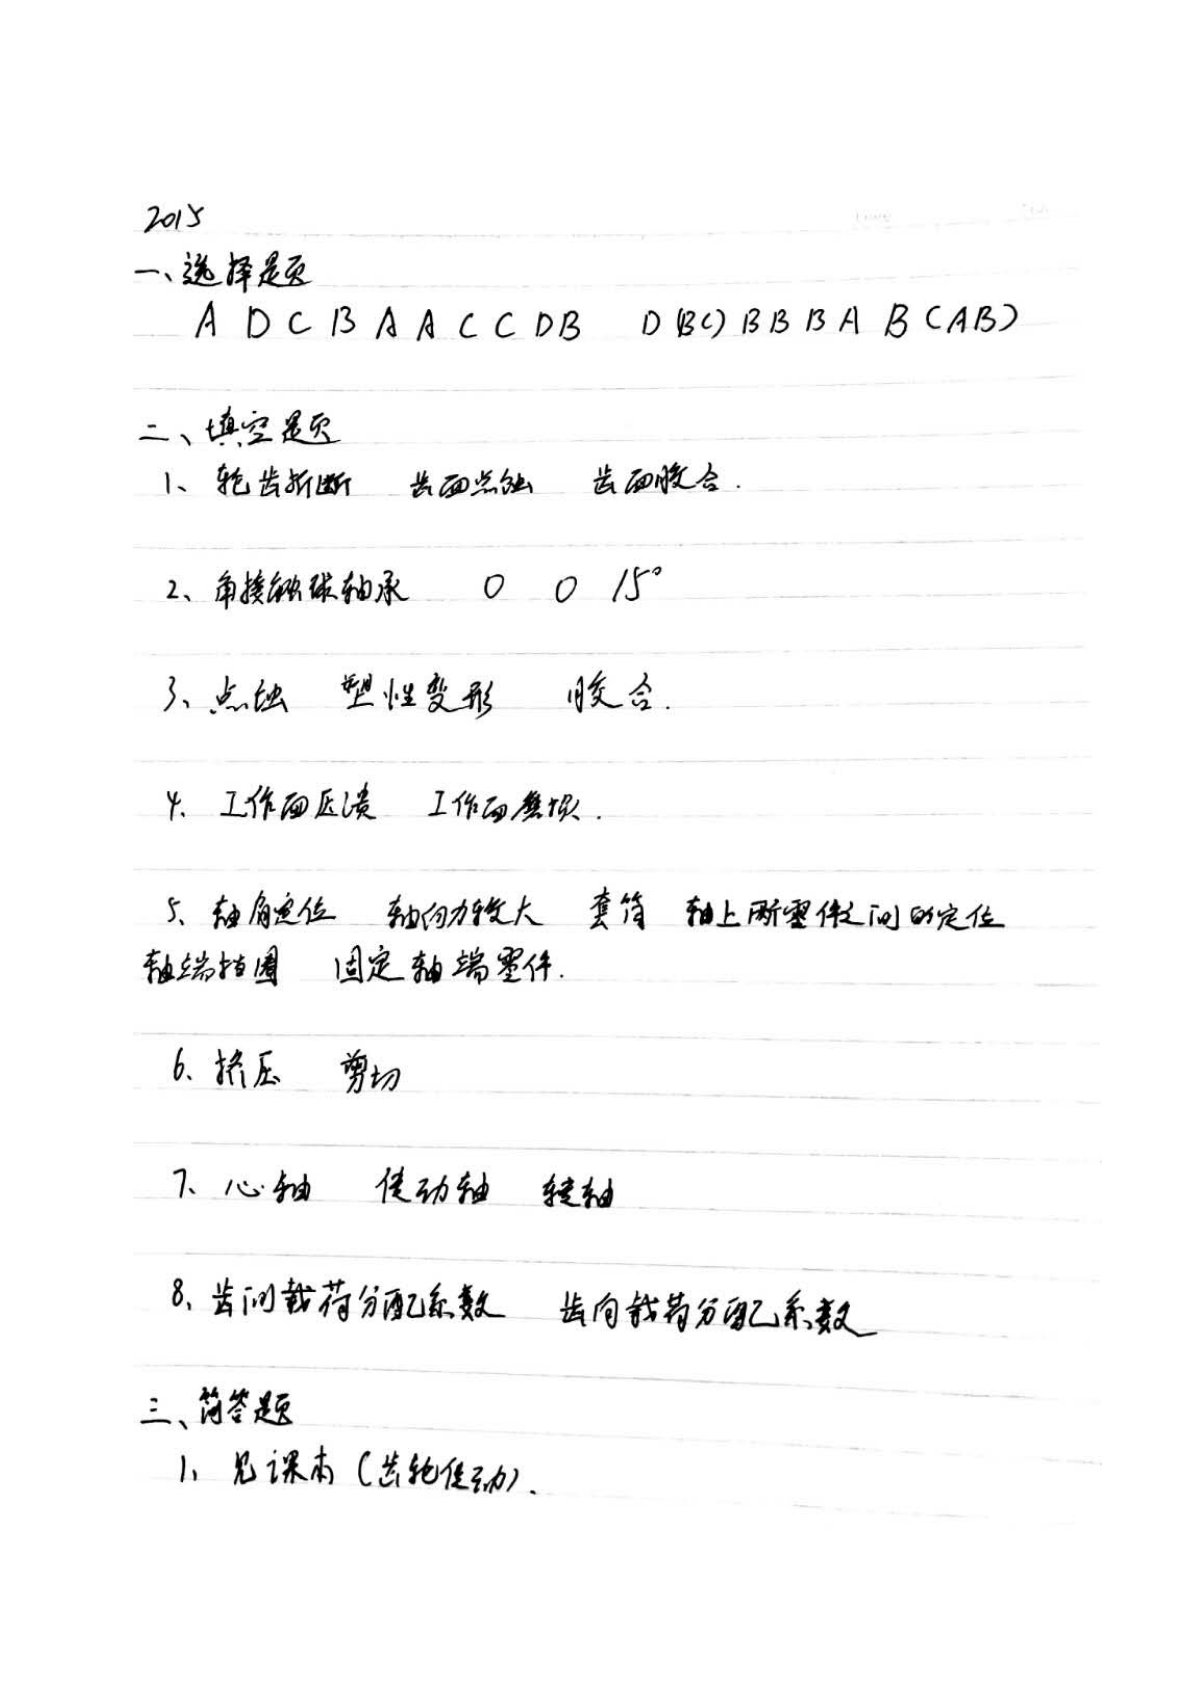 2015
一、选择题
A D C B A A C C D B D (BC) B B B A B (AB)
二、填空题
1、轮齿折断 齿面点蚀 齿面胶合.
2、角接触球轴承 0 0 15°
3、点蚀 塑性变形 胶合.
4、工作面压溃 工作面磨损.
5、轴肩定位 轴向力较大 套筒 轴上两零件之间的定位
轴端挡圈 固定轴端零件.
6、挤压 剪切
7、心轴 传动轴 转轴
8、齿间载荷分配系数 齿向载荷分配系数
三、简答题
1、见课本(齿轮传动).